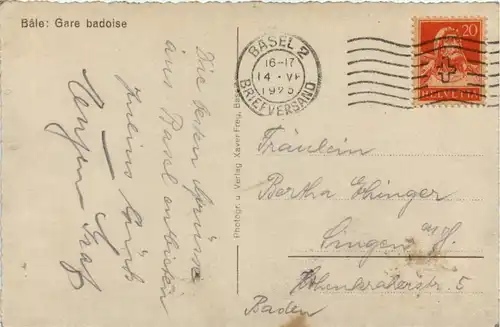 Bâle: Gare badoise
Die besten Grüsse
aus Basel entbieten
Photogr. u. Verlag Xaver Frey, Basel
BASEL 2
16-17
14.VI
1925
BRIEFVERSAND
20
HELVETIA
Fräulein
Bertha Ehinger
Singen a/H.
5
Baden